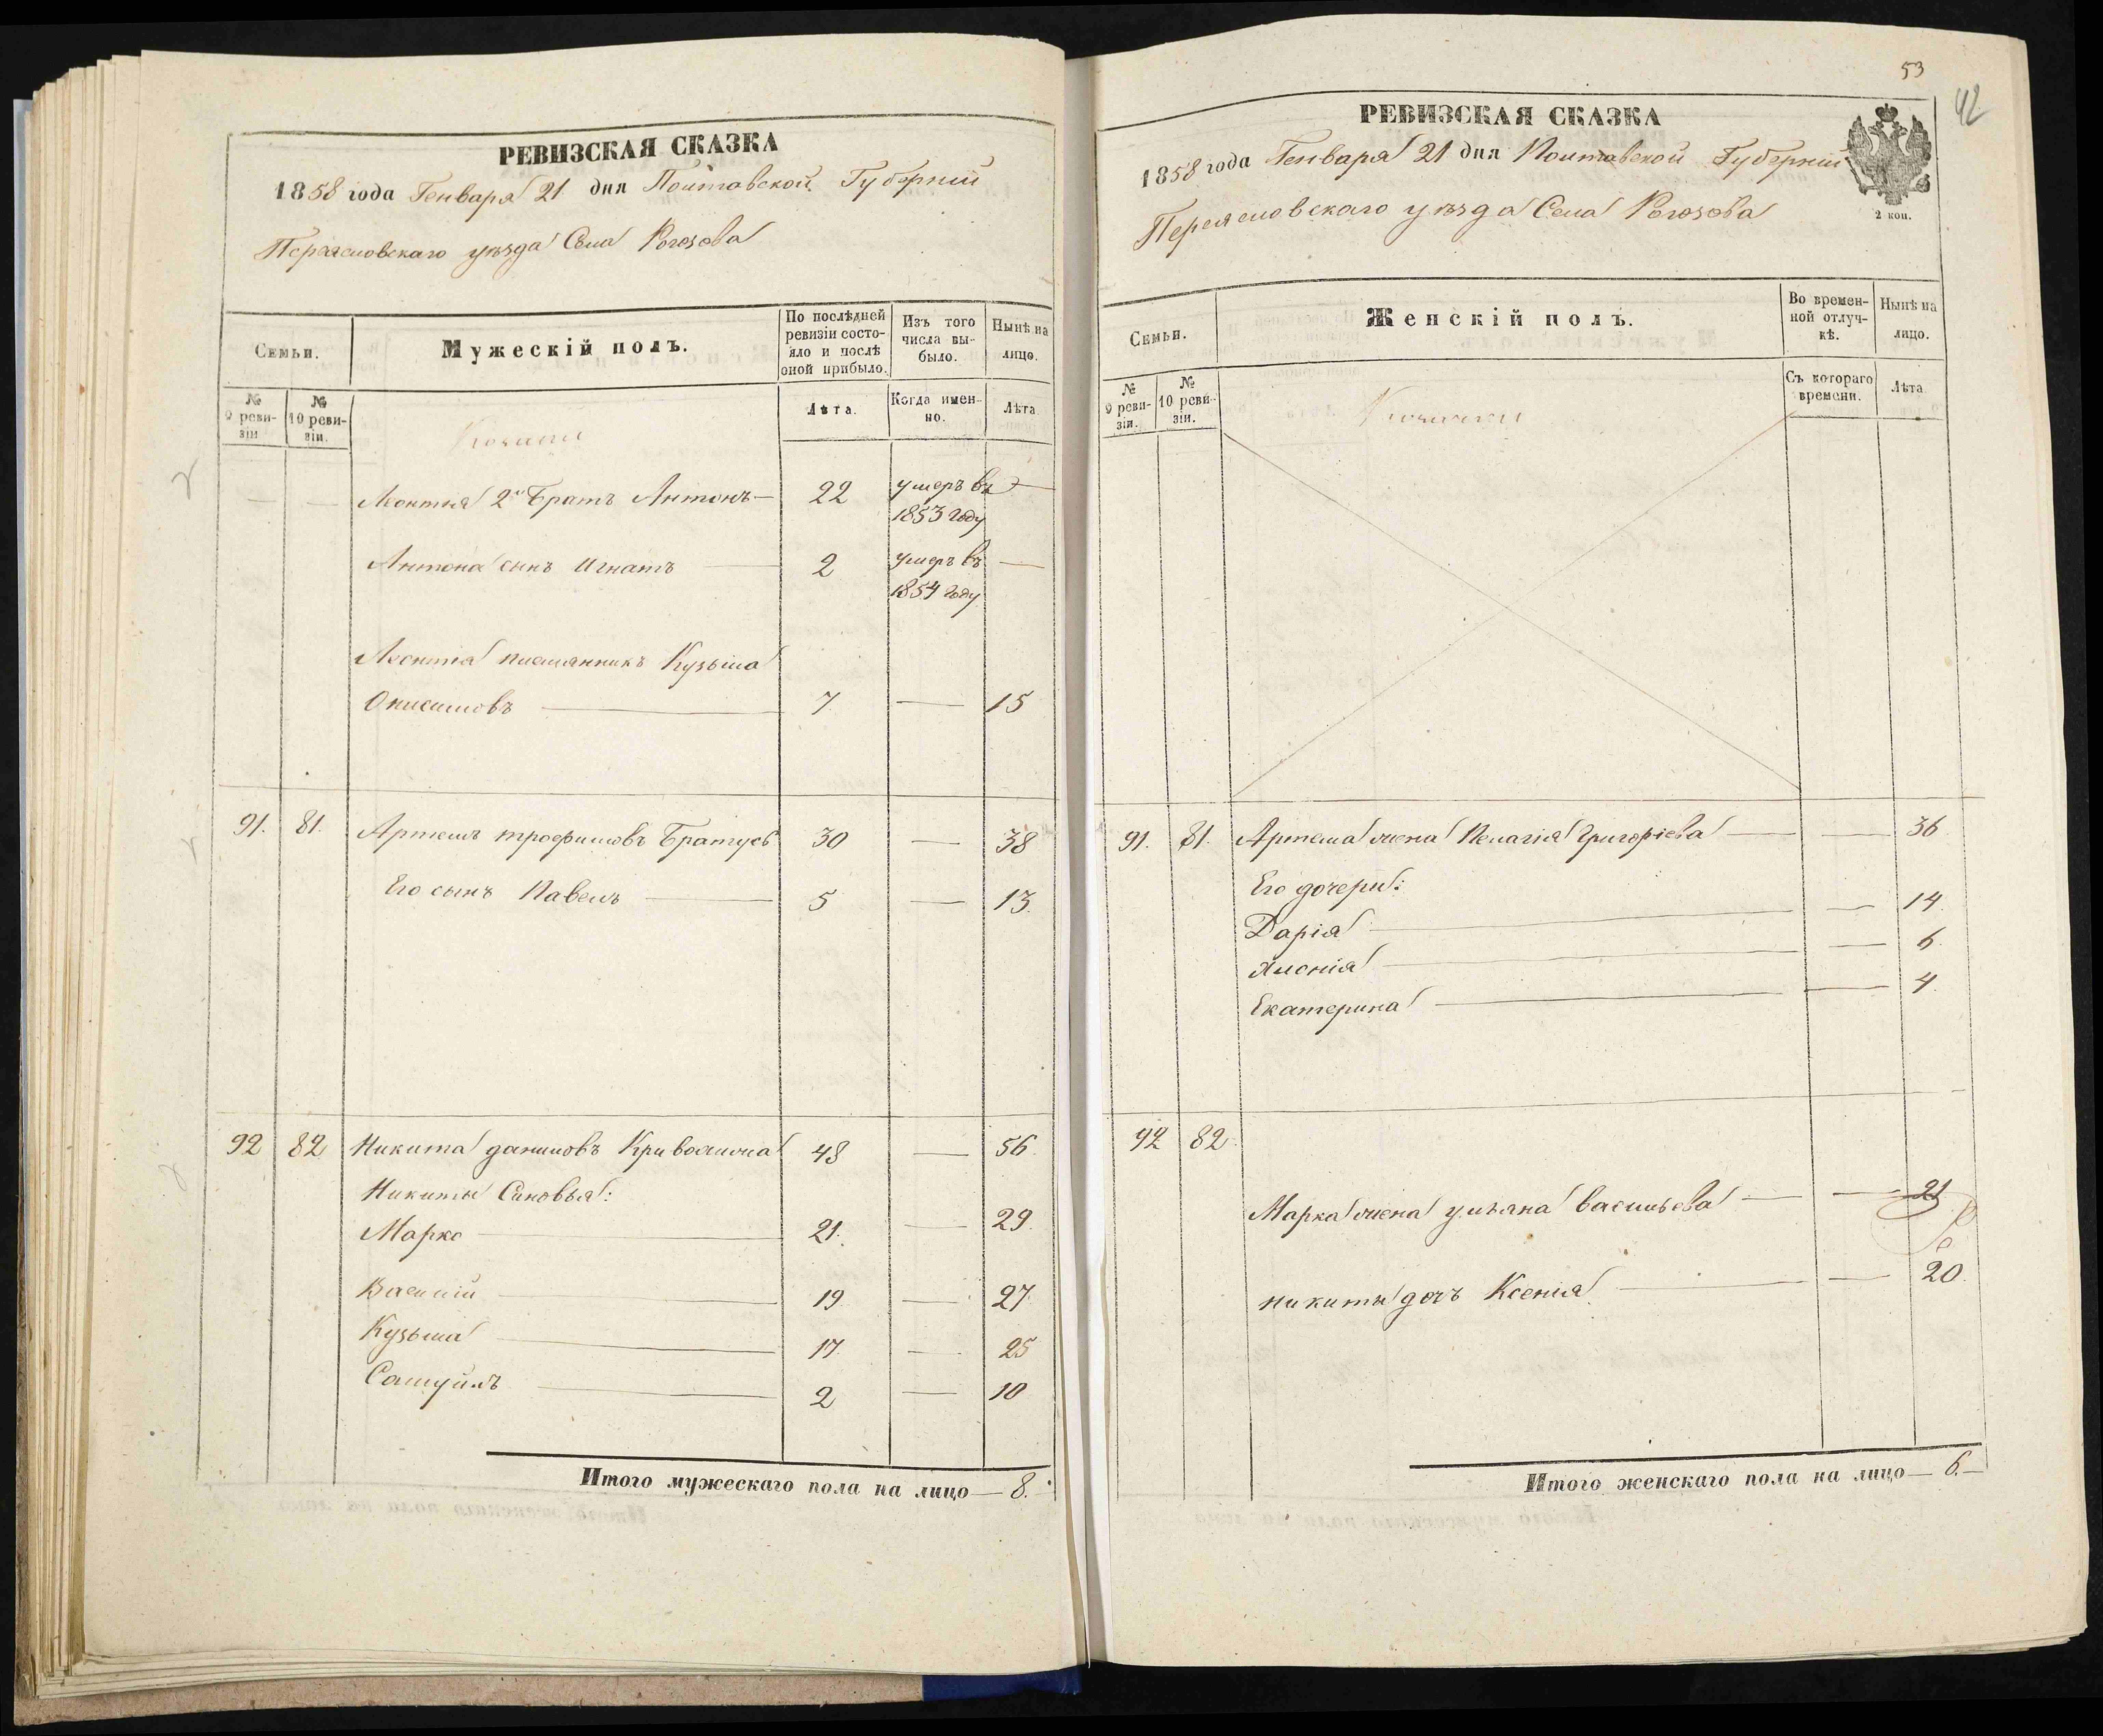 РЕВИЗСКАЯ СКАЗКА
1858 года Генваря 21 дня Полтавской Губерніи
Переяславскаго уѣзда Села Рогозова
Семьи.
Мужескій полъ.
По послѣдней ревизіи состояло и послѣ оной прибыло.
Изъ того числа выбыло.
Нынѣ на лицо.
№ 9 ревизіи
№ 10 ревизіи.
Лѣта.
Когда именно.
Лѣта
Козаки
— — Леонтія 2й Братъ Антонъ — 22 умеръ въ —
1853 году
Антона сынъ Игнатъ — 2 умеръ въ —
1854 году
Леонтія племянникъ Кузьма
Онисимовъ — 7 — 15
91. 81. Артемъ трофимовъ Братусь 30 — 38
Его сынъ Павелъ — 5 — 13.
92 82 Никита даниловъ 48 — 56.
Никиты Сыновья:
Марко — 21. — 29.
Василій — 19 — 27.
Кузьма — 17 — 25
Самуйлъ — 2 — 10
Итого мужескаго пола на лицо — 8.
53
42
РЕВИЗСКАЯ СКАЗКА
1858 года Генваря 21 дня Полтавской Губерніи
2 коп.
Переясловскаго уѣзда Села Рогозова
Семьи.
Женскій полъ.
Во временной отлучкѣ.
Нынѣ на лицо.
№ 9 ревизіи.
№ 10 ревизіи.
Съ котораго времени.
Лѣта
91. 81. Артема жена Пелагія Григоріева — — 36
Его дочери:
Дарія — — 14.
— — 6.
Екатерина — — 4.
92 82.
Марка жена ульяна васильева — — 21
никиты дочъ Ксенія — — 20.
Итого женскаго пола на лицо — 6. —